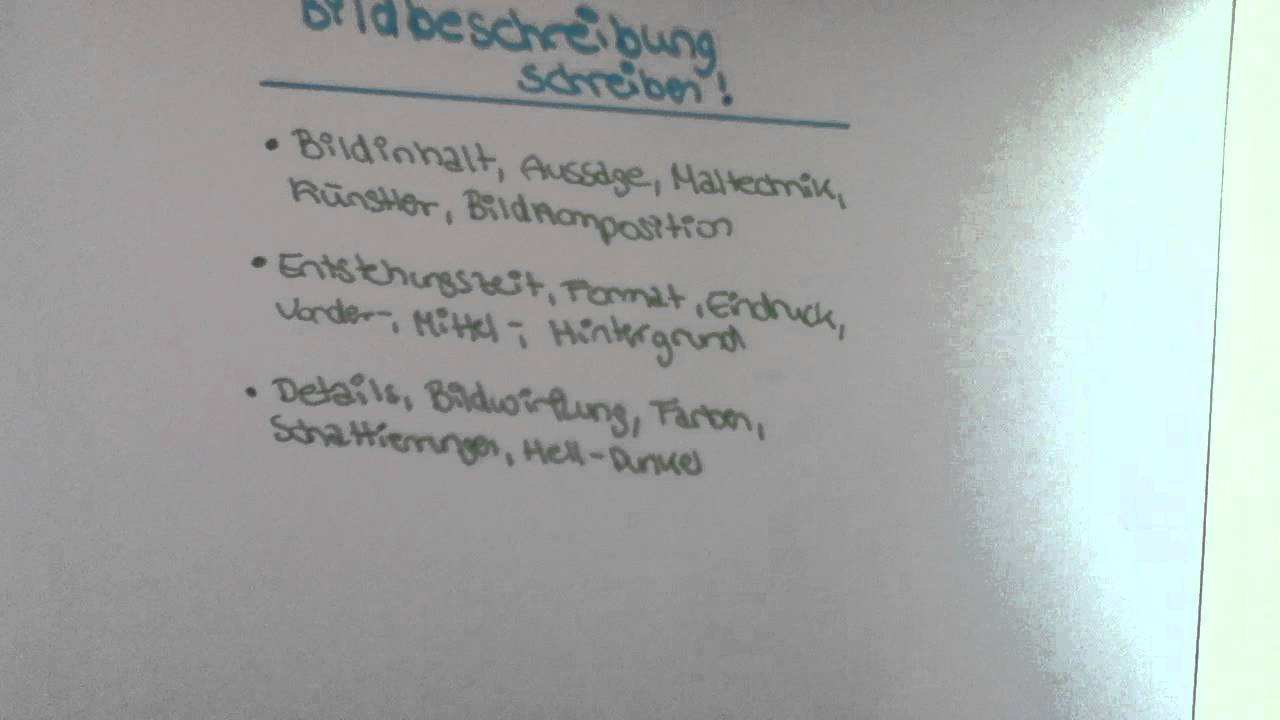 Bildbeschreibung
schreiben!
• Bildinhalt, Aussage, Maltechnik,
Künstler, Bildkomposition
• Entstehungszeit, Format, Eindruck,
Vorder-, Mittel-, Hintergrund
• Details, Bildwirkung, Farben,
Schattierungen, Hell-Dunkel